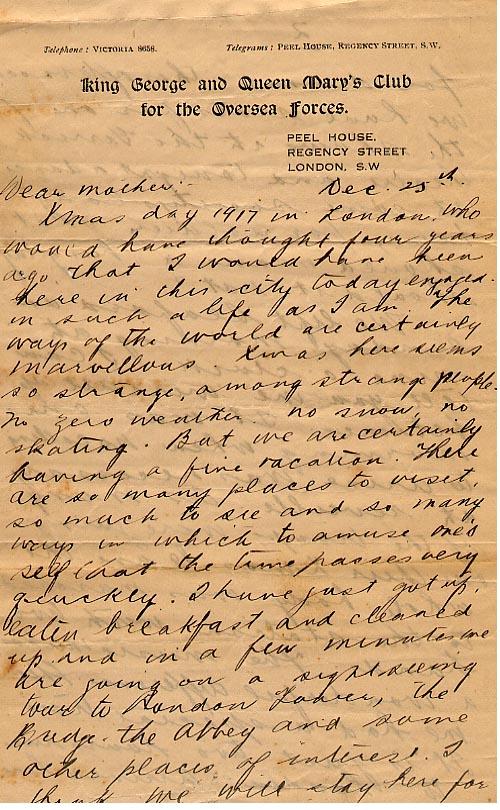 Telephone: VICTORIA 8658. Telegrams: PEEL HOUSE, REGENCY STREET, S.W.
King George and Queen Mary's Club
for the Oversea Forces.
PEEL HOUSE,
REGENCY STREET
LONDON, S.W
Dear mother:- Dec. 25th.
Xmas day 1917 in London, who
would have thought four years
ago that I would have been
here in this city today engaged
in such a life as I am. The
ways of the world are certainly
marvellous. Xmas here seems
so strange, among strange people.
No zero weather no snow, no
skating. But we are certainly
having a fine vacation. There
are so many places to visit,
so much to see and so many
ways in which to amuse one's
self that the time passes very
quickly. I have just got up,
eaten breakfast and cleaned
up and in a few minutes we
are going on a sightseeing
tour to London Tower, the
Bridge the Abbey and some
other places of interest. I
think we will stay here for